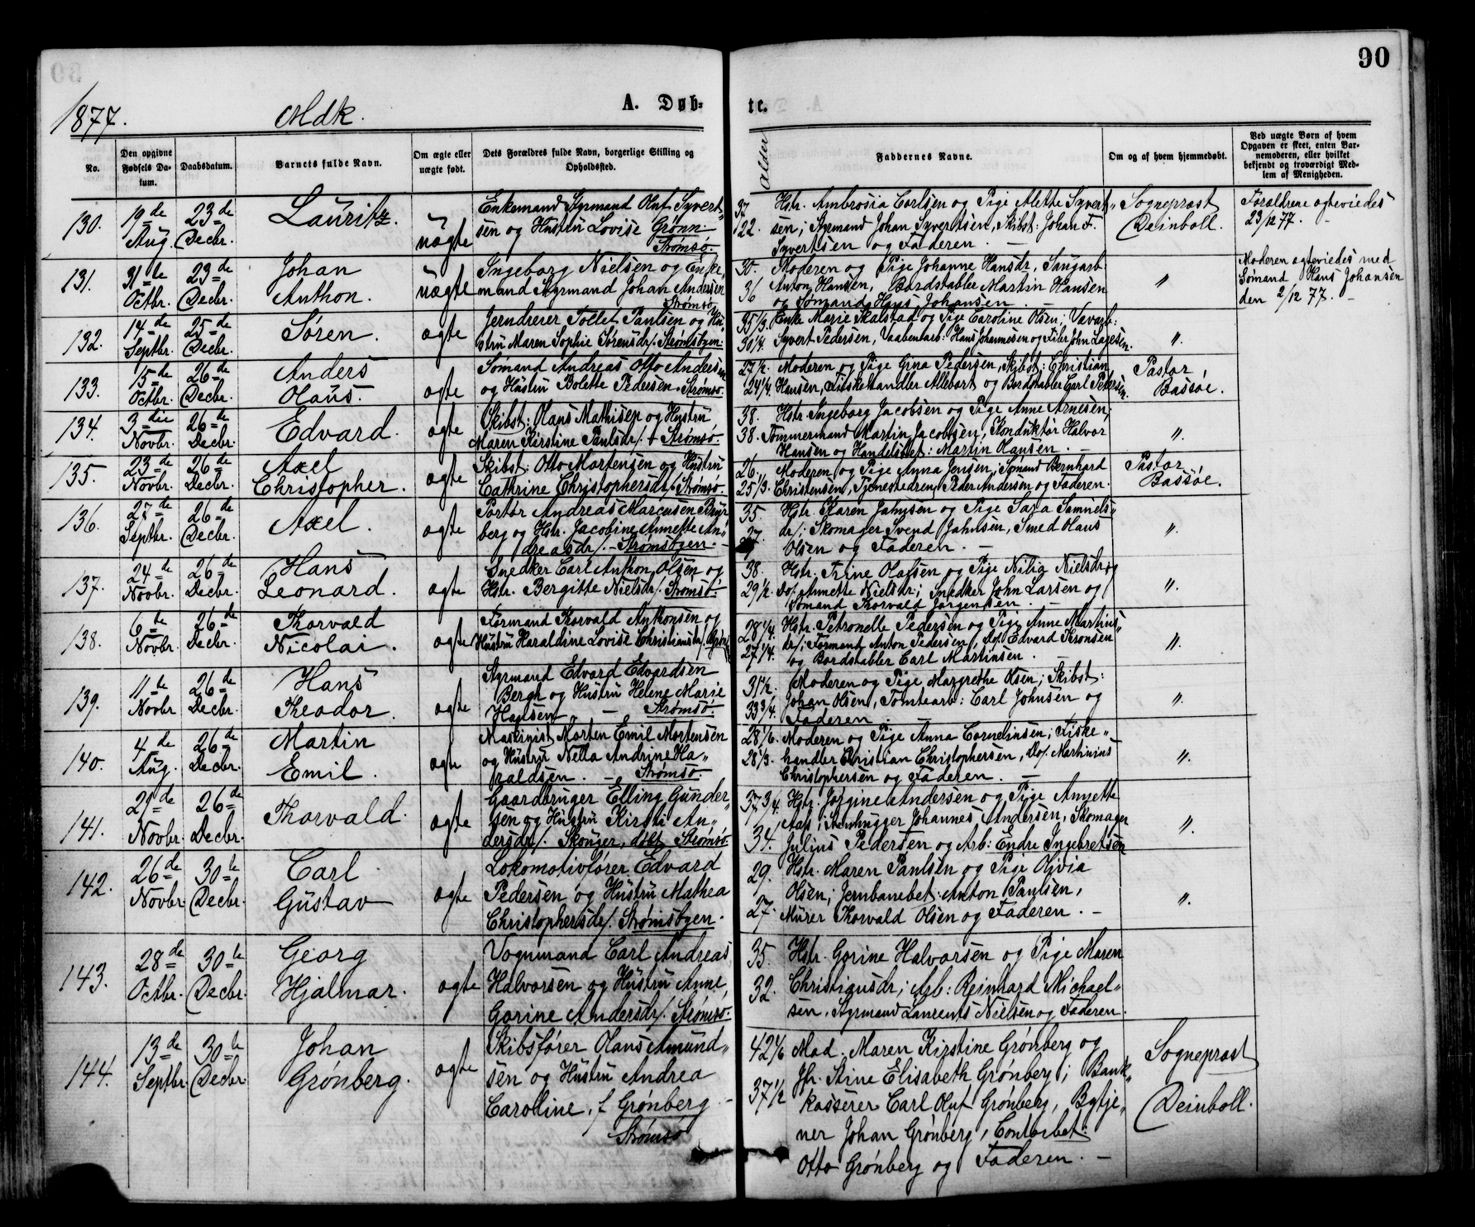 90
1877. Mdk. A. Døb- te.
No.
Den opgivne Fødsels Datum.
Daabsdatum.
Barnets fulde Navn.
Om ægte eller uægte født.
Dets Forældres fulde Navn, borgerlige Stilling og Opholdssted.
Alder
Faddernes Navne.
Om og af hvem hjemmedøbt.
Ved uægte Børn af hvem Opgaven er skeet, enten Barnemoderen, eller hvilket bekjendt og troværdigt Medlem af Menigheden.
130. 19de Aug. 23de Decbr. Lauritz uægte
Enkemand Styrmand Oluf Syvert-
sen og Hustru Lovise Grønn
Strømsø.
37 Hstr. Ambrosia Carlsen og Pige Alette Syvert-
22. sen; Styrmand Johan Syvertsen, Skibst: Johan F.
Syvertsen og Faderen. —
Sogneprest Deinboll.
Forældrene ægteviedes 23/12 77.
131. 31te Octbr. 23de Decbr. Johan Anthon. uægte
Ingeborg Nielsen og Enke,
mand Styrmand Johan Andersen
Strømsø,
30. Moderen og Pige Johanne Hansdr, Saugarb
36 Anton Hansen, Bordstabler Martin Hansen
og Sømand Hans Johansen. —
"
Moderen ægteviedes med
Sømand Hans Johansen
den 2/12 77. —
132. 14de Septbr. 25de Decbr. Søren. ægte
Jerndreier Tollef Paulsen og Hu-
stru Maren Sophie Sørensdr/. Strømsøgen.
35 1/3. Enke Marie Skalstad og Pige Caroline Olsen;
30 1/4 Syvert Pedersen, Hans Johannesen og John Larsen.
"
133. 15de Octbr. 26de Decbr. Anders Olaus. ægte
Sømand Andreas Otto Andersen
og Hustru Bolette Pedersen. Strømsø.
27 1/2. Moderen og Pige Gina Pedersen, Skibst: Christian
24 1/4 Hansen, Allebort og Bordstabler Carl Petersen.
Pastor Bassøe.
134. 3die Novbr. 26de Decbr. Edvard. ægte
Skibst: Hans Mathisen og Hustru
Maren Kirstine Paulsdr/. Strømsø.
38. Hstr. Ingeborg Jacobsen og Pige Anne Arnesen,
38. Tømmermand Martin Jacobsen, Konduktør Halvor
Hansen og Handelsbet: Martin Hansen. —
"
135. 23de Novbr. 26de Decbr. Axel Christopher. ægte
Skibst. Otto Mortensen og Hustru
Cathrine Christophersdr/. Strømsø.
26. Moderen og Pige Anna Jensen, Sømand Bernhard
25 1/3. Christensen, Peder Andersen og Faderen.
Pastor Bassøe.
136. 27de Septbr. 26de Decbr. Axel. ægte
Portør Andreas Marcusen
berg og Hstr. Jacobine Annette An-
dreasdr/. — Strømsøgen. —
35 Hstr. Karen Jahnsen og Pige Sara Samuels-
37. dr/; Skomager Svend Jahnsen, Smed Olaus
Olsen og Faderen. —
"
137. 24de Novbr. 26de Decbr. Hans Leonard. ægte
Snedker Carl Anthon Olsen og
Hstr. Bergitte Nielsdr/. Strømsø.
38. Hstr. Trine Olafsen og Pige Nilia Nielsdr og
29 1/2. Do. Annette Nielsdr; Snedker John Larsen og
Sømand Thorvald Jørgensen. —
"
138. 6te Novbr. 26de Decbr. Thorvald Nicolai. ægte
Formand Thorvald Anthonsen og
Hustru Haraldine Lovise Christiansdr/.
28 1/4. Hstr. Petronelle Pedersen og Pige Anne Martins-
27 1/4. dr/; Formand Anton Pedersen, do Edvard Aronsen
og Bordstabler Carl Martinsen
"
139. 11te Novbr. 26de Decbr. Hans Theodor. ægte
Styrmand Edvard Edvardsen
Bergh og Hustru Helene Marie
Hansen. — Strømsø.
31 1/2. Moderen og Pige Margrethe Olsen; Skibst:
33 3/4. Johan Olsen, Tomtearb: Carl Johnsen og
Faderen
"
140. 4de Aug. 26de Decbr. Martin Emil. ægte
Maskinist Morten Emil Mortensen
og Hustru Nella Andrine Ha-
raldsen. — Strømsø
28 1/6. Moderen og Pige Anna Cornelinsen; Fiske-
28 1/3. handler Christian Christophersen, Do. Martinius
Christophersen og Faderen. —
"
141. 21de Novbr. 26de Decbr. Thorvald. ægte
Gaardbruger Elling Gunder-
sen og Hustru Kirsti An-
dersdr/. Skouger, døbt Strømsø.
37 3/4. Hstr. Jorgine Andersen og Pige Annette
34. Aas; Stenhugger Johannes Andersen, Skomager
Julius Pedersen og Arb: Endre Ingebretsen
"
142. 26de Novbr 30te Decbr. Carl Gustav ægte
Lokomotivfører Edvard
Pedersen og Hustru Mathea
Christophersdr/. Strømsøgen.
29. Hstr. Maren Paulsen og Pige Olivia
27. Olsen; Jernbanebet: Anton Paulsen,
Murer Thorvald Olsen og Faderen. —
"
143. 28de Octbr. 30te Decbr. Georg Hjalmar. ægte
Vognmand Carl Andreas
Halvorsen og Hustru Anne
Gorine Andersdr/. Strømsø.
35. Hstr. Gorine Halvorsen og Pige Maren
32. Christiansdr; Arb: Reinhard Michael-
sen, Styrmand Laurents Nielsen og Faderen.
144. 13de Septbr. 30te Decbr Johan Grønberg. ægte
Skibsfører Hans Amund-
sen og Hustru Andrea
Caroline, f. Grønberg —
Strømsø
42 1/6 Mad. Maren Kirstine Grønberg og
37 1/2 Jfr. Stine Elisabeth Grønberg; Bank-
kasserer Carl Oluf Grønberg, Bytje-
ner Johan Grønberg, Contorbet:
Otto Grønberg og Faderen. —
Sogneprest Deinboll.